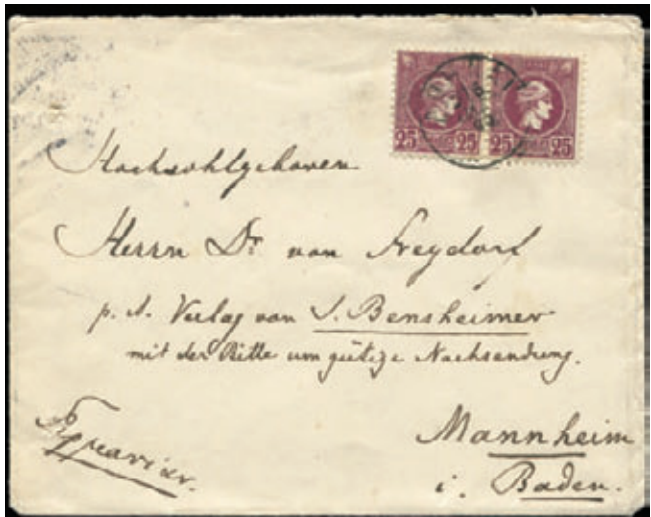 25 25 25 25
Hochwohlgeboren
Herrn Dr. von Freydorf
p. A. Verlag von J. Bensheimer
mit der Bitte um gütige Nachsendung.
Mannheim
i. Baden.